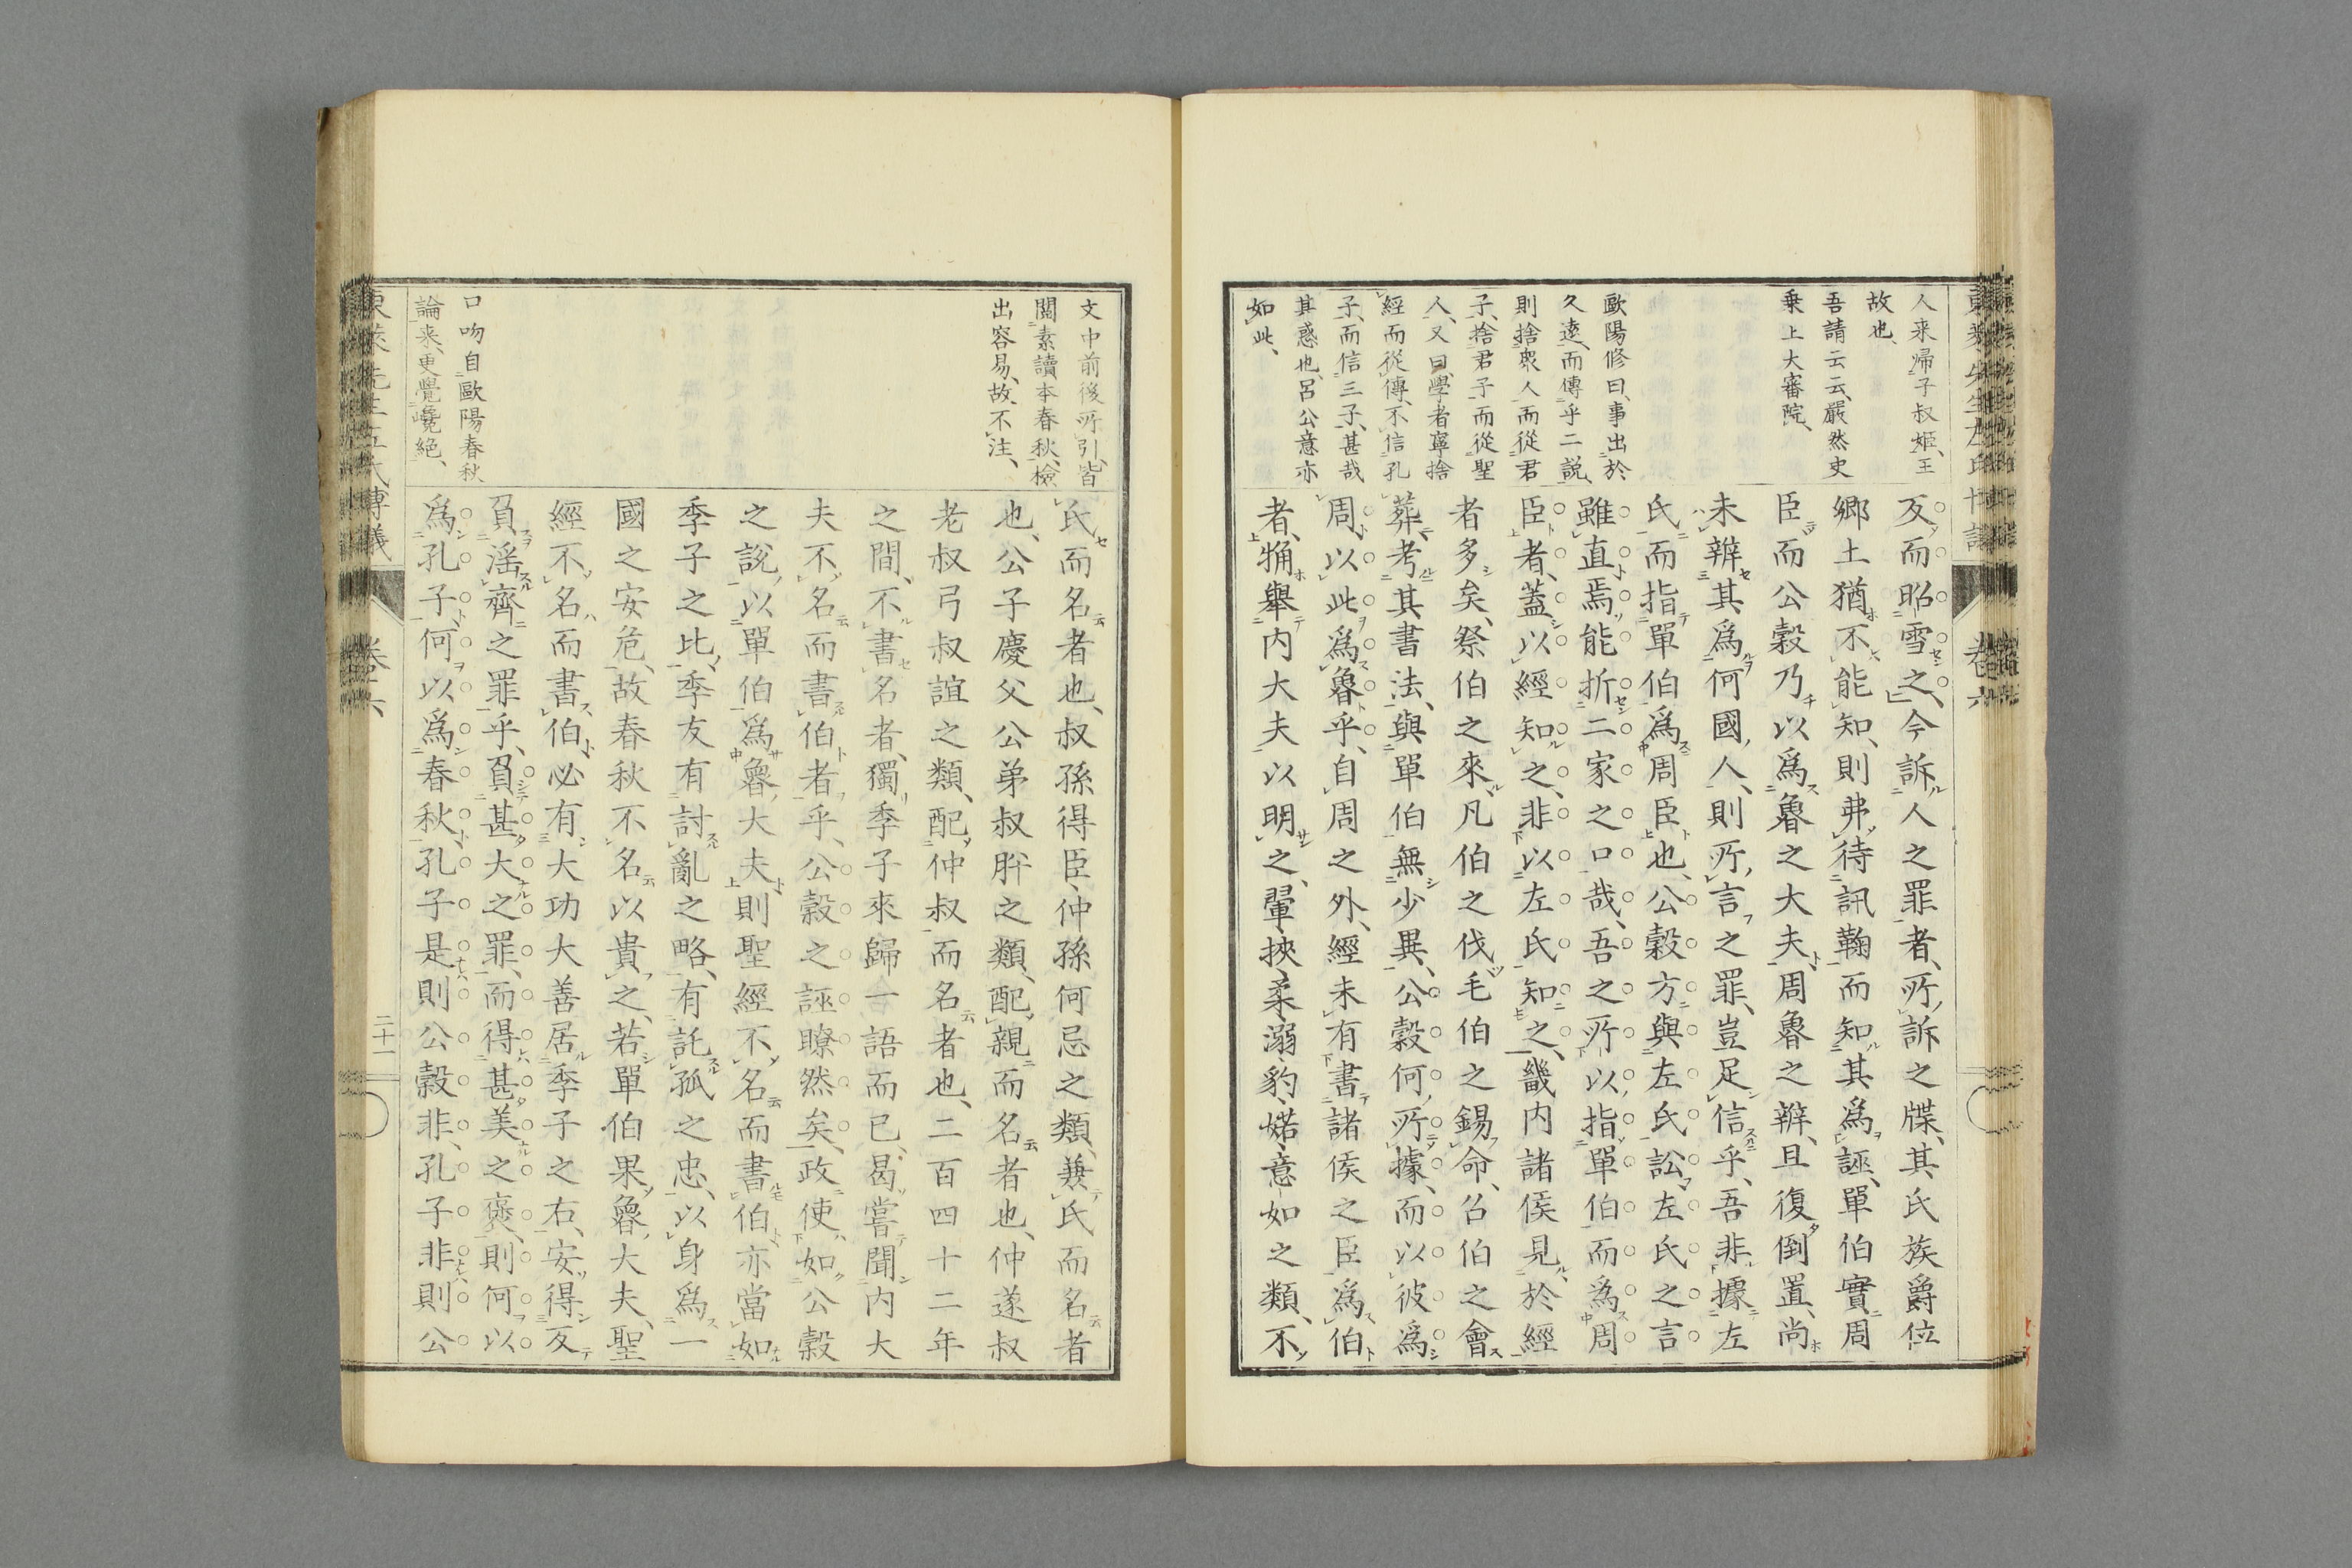 人来帰子叔姬、王
故也、
吾請云云、嚴然史
乗上大審院、
歐陽修曰、事出於
久遠、而傳乎二説、
則捨衆人而從君
子、捨君子而從聖
人、又曰、學者寧捨
經而從傳、不信孔
子、而信三子、甚哉
其惑也、呂公意亦
如此、
反而昭雪之、今訴人之罪者、所訴之牒、其氏族爵位
鄉土猶不能知、則弗待訊鞠而知其爲誣、單伯實周
臣而公穀乃以爲魯之大夫、周魯之辨、且復倒置、尚
未辨其爲何國人、則所言之罪、豈足信乎、吾非據左
氏而指單伯爲周臣也、公穀方與左氏訟、左氏之言
雖直焉、能折二家之口哉、吾之所以指單伯而為周
臣者、蓋以經知之、非以左氏知之、畿内諸侯見於經
者多矣、祭伯之來、凡伯之伐、毛伯之錫命、召伯之會
葬、考其書法、與單伯無少異、公穀何所據、而以彼爲
周、以此爲魯乎、自周之外、經未有書諸侯之臣爲伯
者、觕舉内大夫以明之、翬、挾、柔、溺、豹、婼、意如之類、不
卷六
文中前後所引、皆
閲素讀本春秋、檢
出容易、故不注、
口吻自歐陽春秋
論来、更覺巉絕、
氏而名者也、叔孫得臣、仲孫何忌之類、兼氏而名者
也、公子慶父公弟叔肸之類、配親而名者也、仲遂叔
老叔弓叔誼之類、配仲叔而名者也、二百四十二年
之間、不書名者、獨季子來歸一語而已、曷嘗聞内大
夫不名而書伯者乎、公穀之誣瞭然矣、政使如公穀
之說、以單伯爲魯大夫、則聖經不名而書伯亦當如
季子之比、季友有討亂之略、有託孤之忠、以身爲一
國之安危、故春秋不名以貴之、若單伯果魯大夫、聖
經不名而書伯、必有大功大善居季子之右、安得反
負淫齊之罪乎、負甚大之罪、而得甚美之褒、則何以
爲孔子、何以爲春秋、孔子是則公穀非、孔子非則公
卷六
二十一